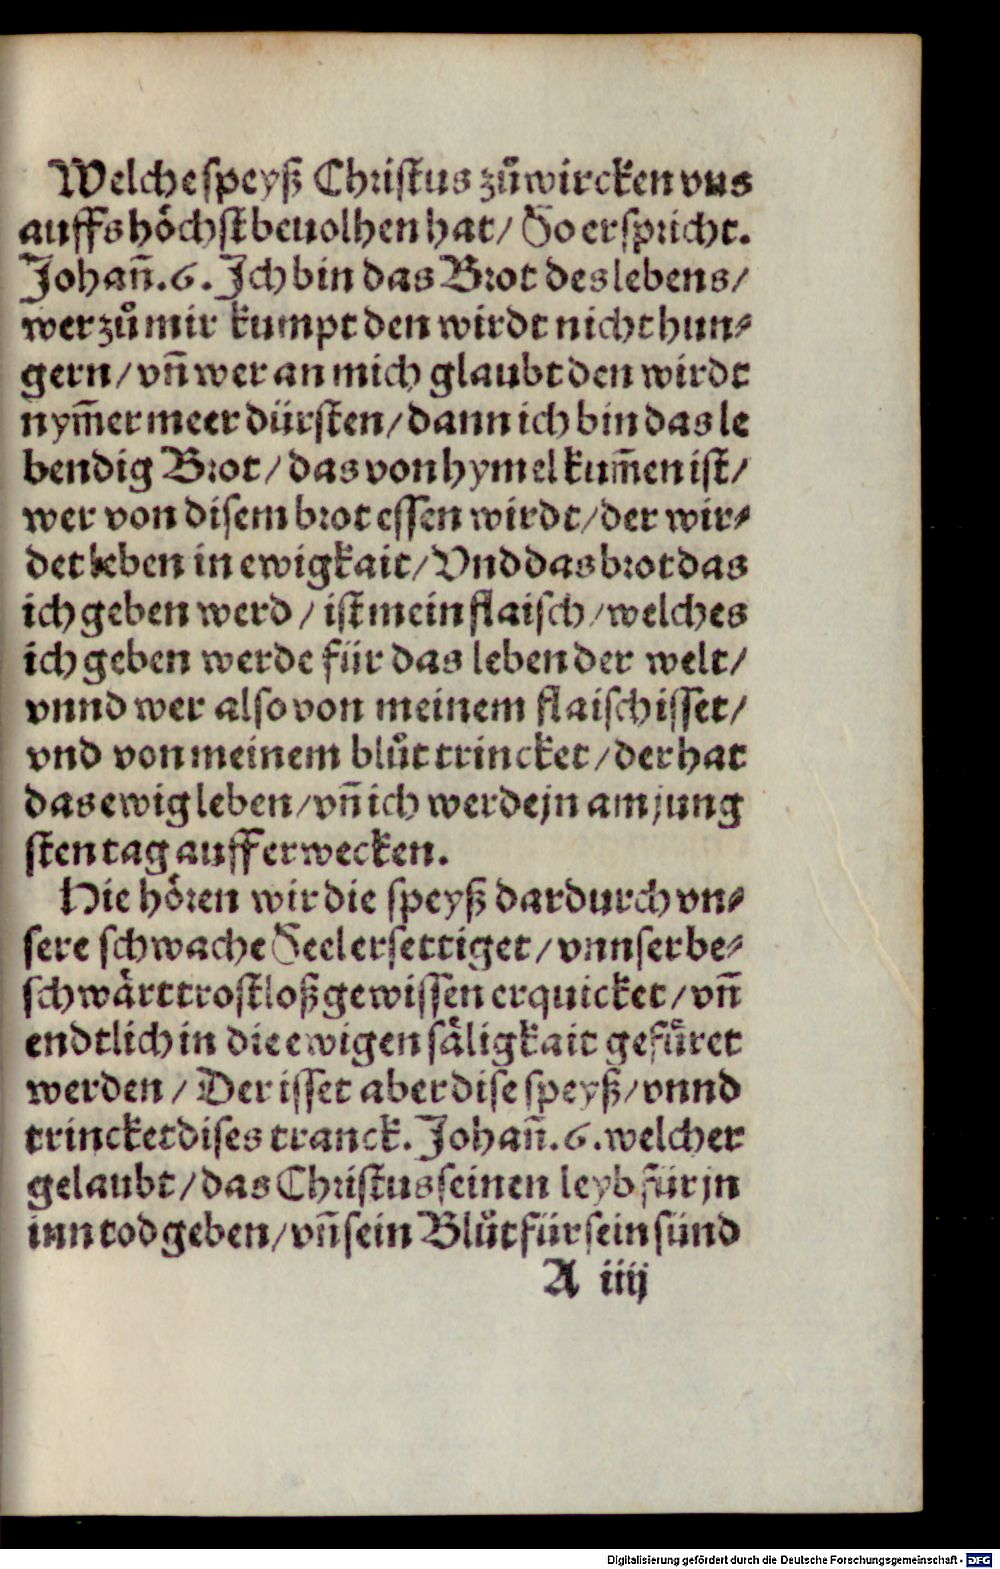 Welche speyß Christus zůwircken vns
auffs höchst beuolhen hat / So er spricht.
Johañ.6. Ich bin das Brot des lebens /
wer zů mir kumpt den wirdt nicht hun⸗
gern / vñ wer an mich glaubt den wirdt
nym̄er meer dürsten / dann ich bin das le
bendig Brot / das von hymel kum̄en ist /
wer von disem brot essen wirdt / der wir⸗
det leben in ewigkait / Vnd das brot das
ich geben werd / ist mein flaisch / welches
ich geben werde für das leben der welt /
vnnd wer also von meinem flaisch isset /
vnd von meinem blůt trincket / der hat
das ewig leben / vñ ich werde jn am jung
sten tag aufferwecken.
Hie hören wir die speyß dardurch vn⸗
sere schwache Seel ersettiget / vnnser be⸗
schwärt trostloß gewissen erquicket / vñ
endtlich in die ewigen säligkait gefüret
werden / Der isset aber dise speyß / vnnd
trincket dises tranck. Johañ.6. welcher
gelaubt / das Christus seinen leyb für jn
inn tod geben / vñ sein Blůt für sein sünd
A iiij
Digitalisierung gefördert durch die Deutsche Forschungsgemeinschaft - DFG